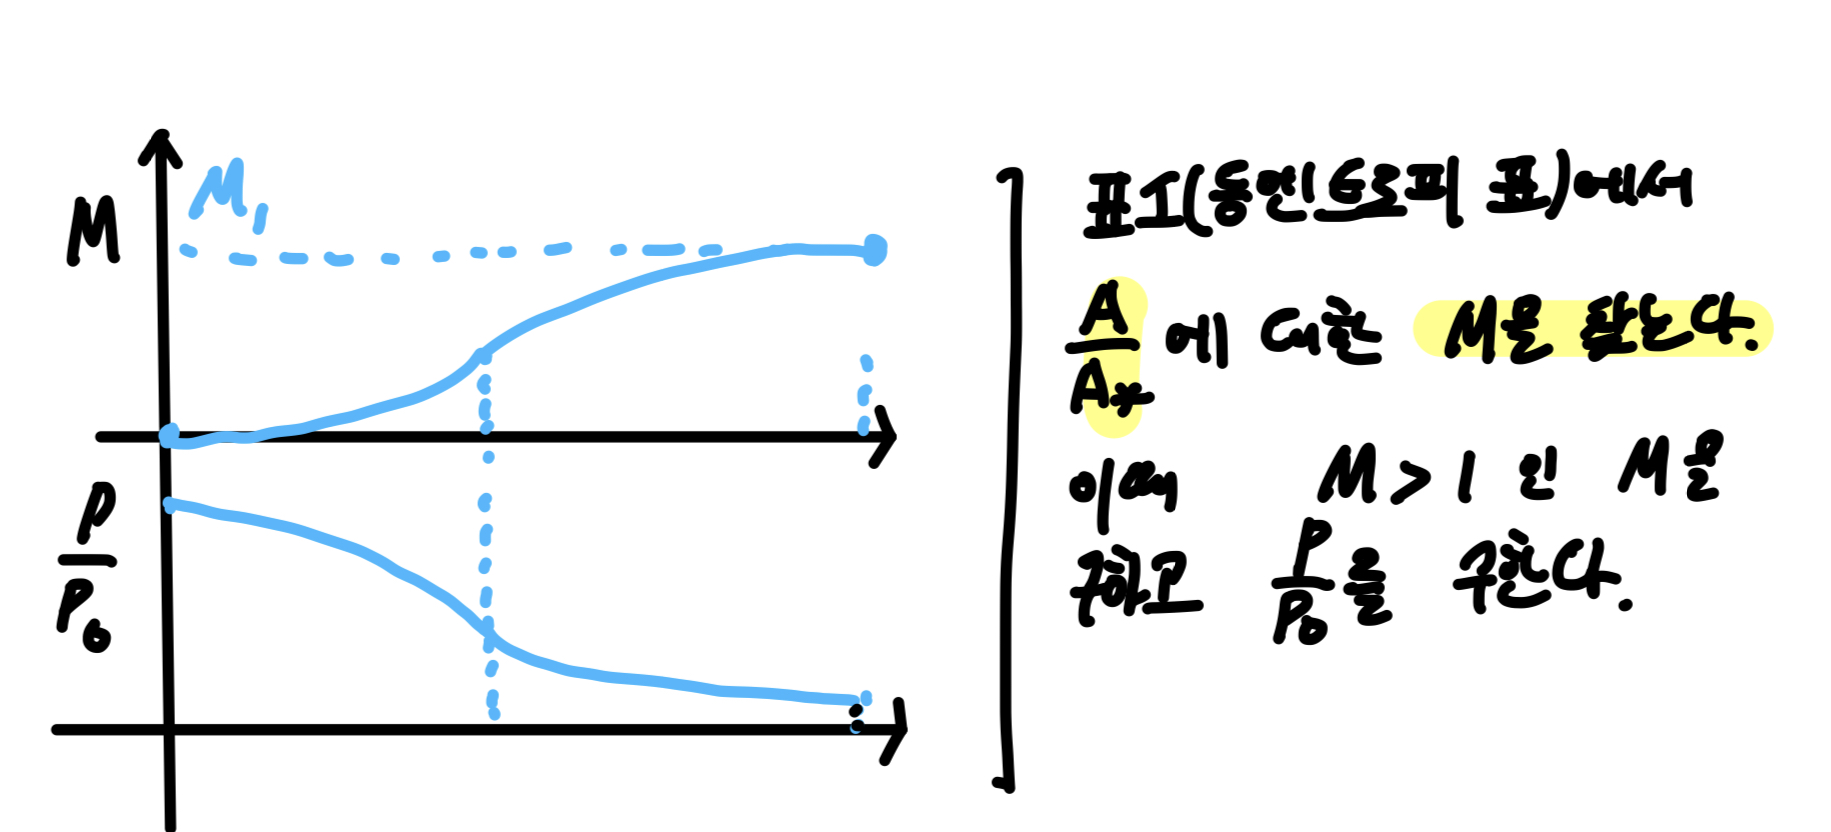 M₁
M
P/P₀
표1(등엔트로피 표)에서
A/A* 에 대한 M을 찾는다.
이때 M > 1 인 M을
구하고 P/P₀를 구한다.